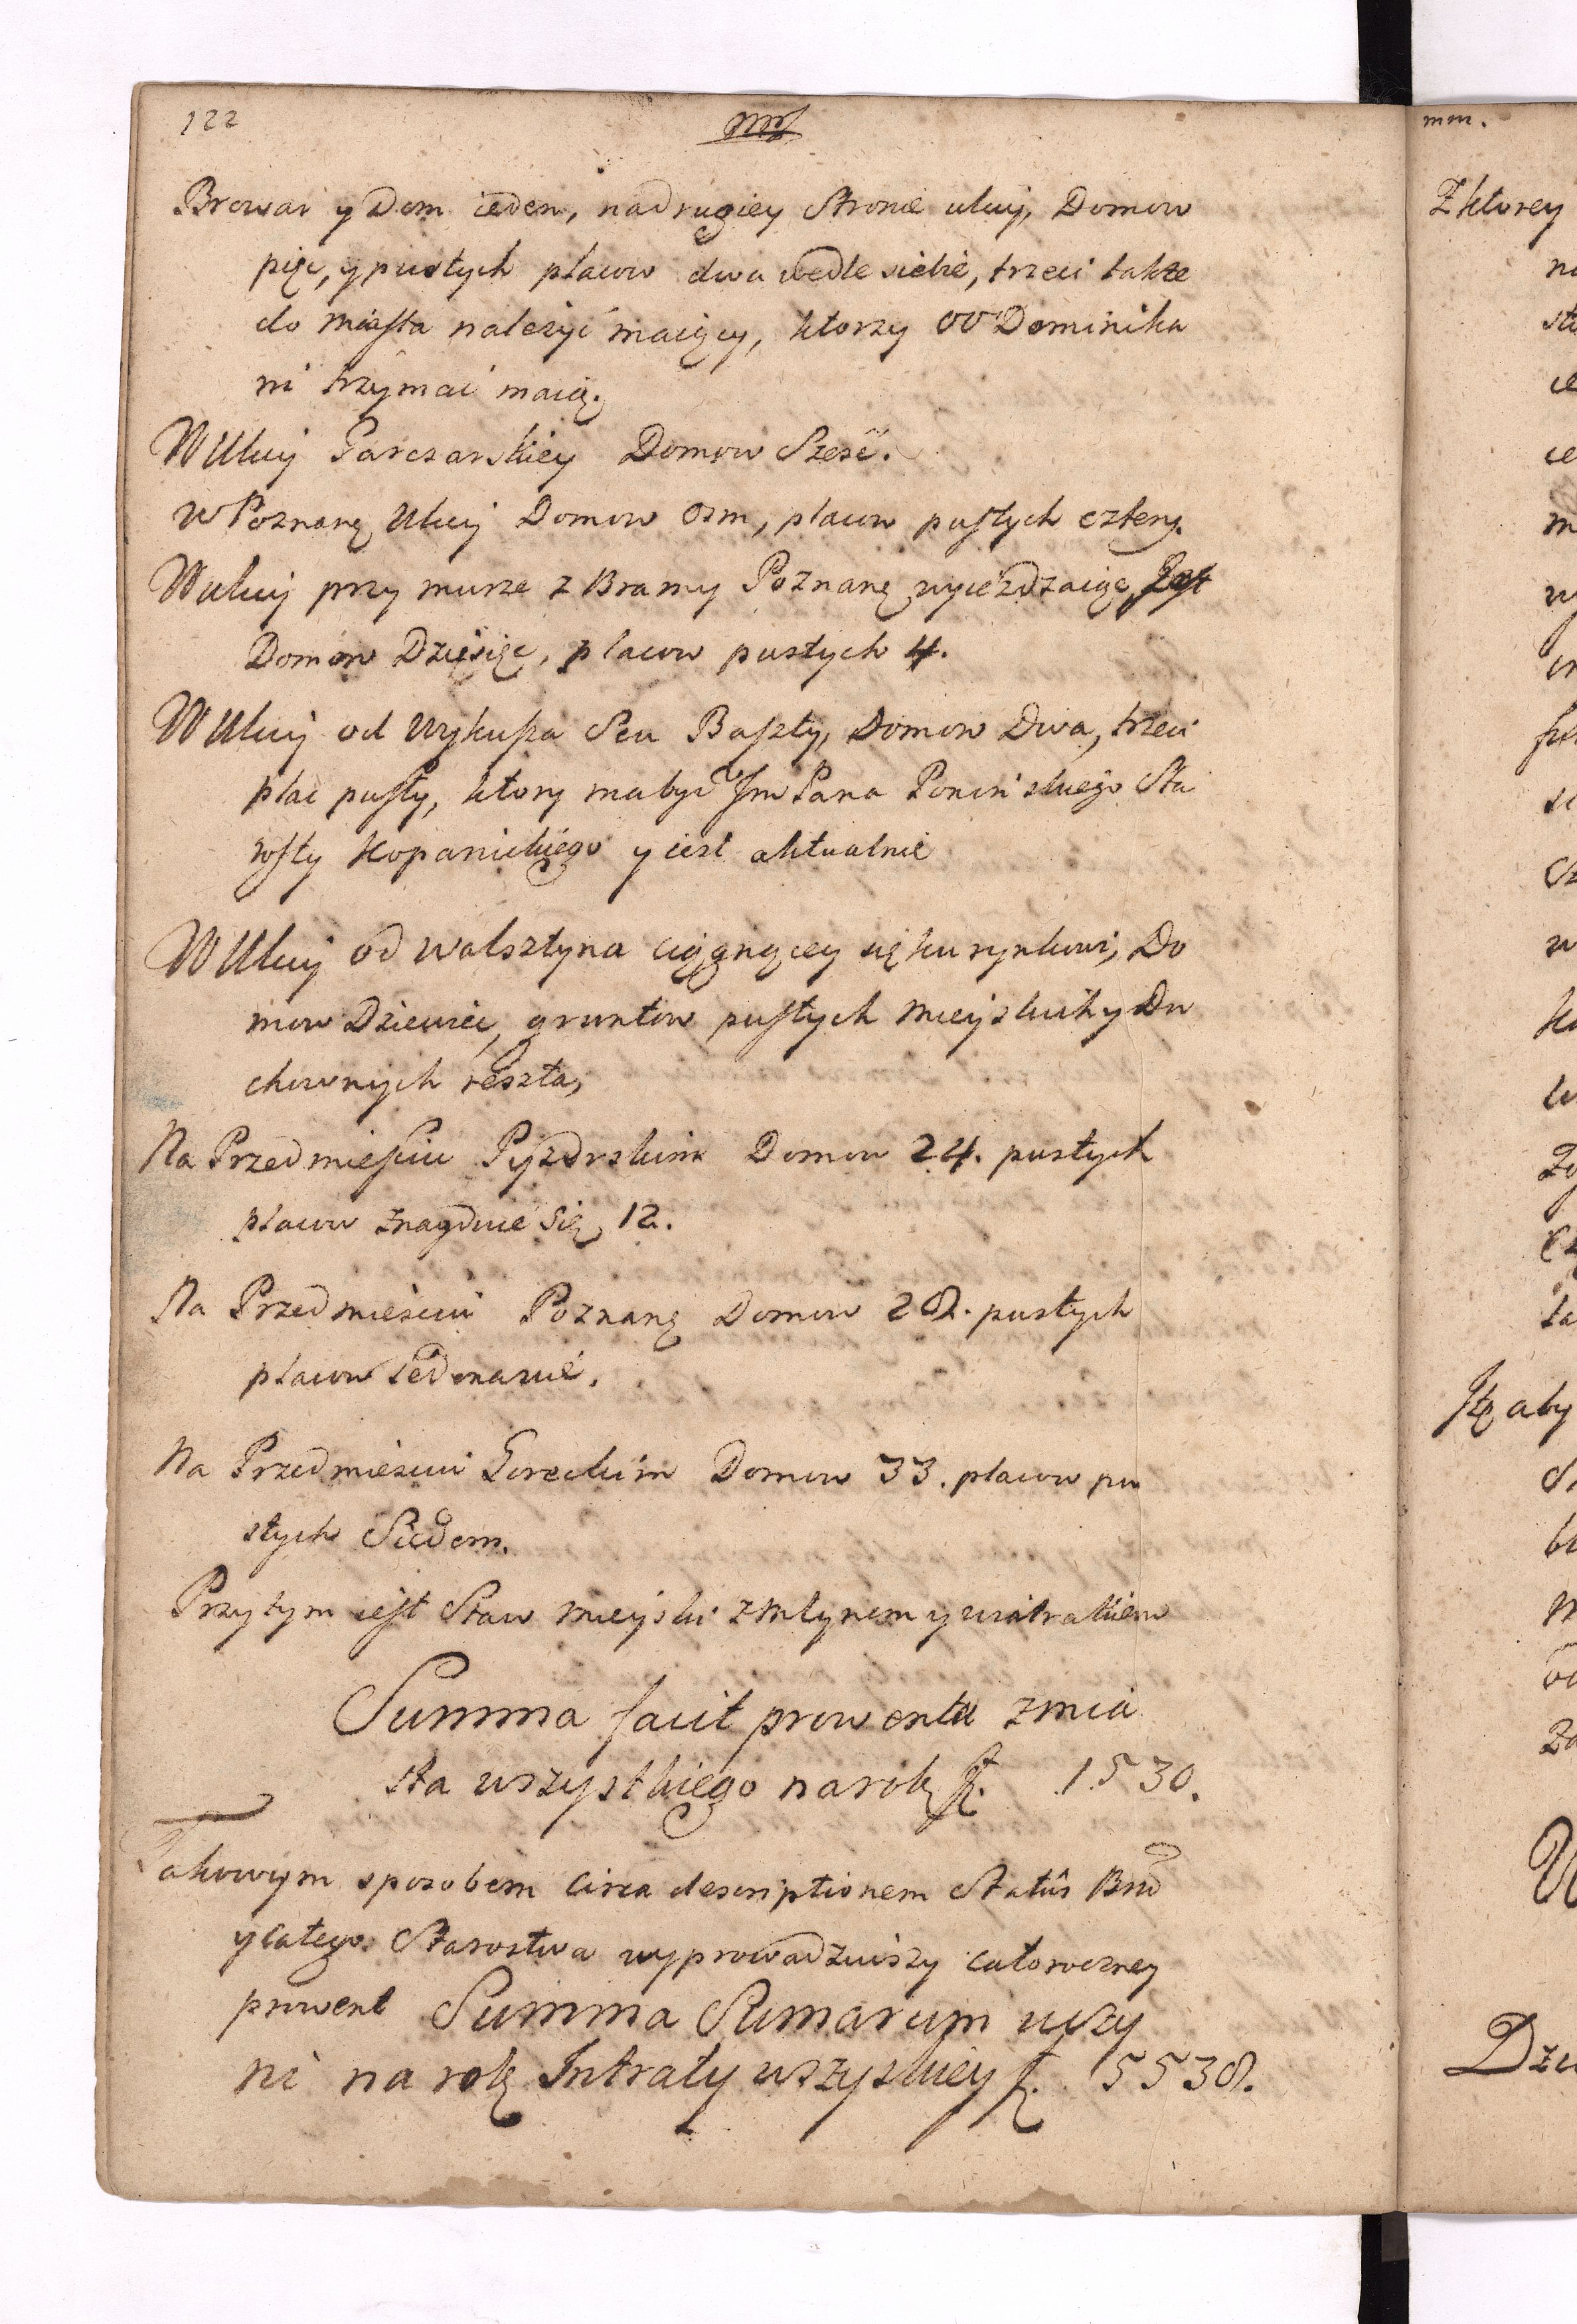 122
Browar y Dom ieden, na drugiey Stronie ulicy, Domow
pięć, y pustych placow dwa wedle siebie, trzeci także
do miasta należyć maiący, ktorzy OO Dominika
ni trzymać maią.
W Ulicy Garczarskiey Domow Sześć.
w Poznanę Ulicy Domow osm, placow pustych cztery.
W ulicy przy murze z Bramy Poznanę wyieżdzaiąc, Jest
Domow Dziesięć, placow pustych 4.
W Ulicy od Wykusza Seu Baszty, Domow Dwa, trzeci
plac pusty, ktory ma być Jm Pana Ponińskiego Sta
rosty Kopanickiego y iest aktualnie
W Ulicy od Walsztyna ciągnącey się ku rynkowi, Do
mow Dziewięć, gruntow pustych mieyskich y Du
chownych reszta,
Na Przedmieściu Pyzdrskim Domow 24. pustych
placow znayduie się 12.
Na Przedmieściu Poznanę Domow 28. pustych
placow iedenaście.
Na Przedmieściu Goreckim Domow 33. placow pu
stych Siedem.
Przytym iest Staw mieyski z młynem y wiatrakiem
Summa facit prowentu z mia
sta wszystkiego na rok f. 1530.
Takowym sposobem circa descriptionem Statûs Bnô
y całego Starostwa wyprowadziwszy całoroczney
prowent Summa Sumarum uczy
ni na rok Intraty wszyskiey f. 5538.
mm.
Z ktorey